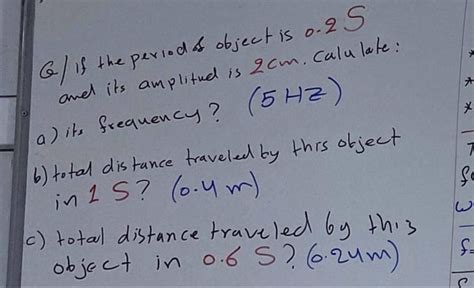 Q/ if the period of object is 0.2 S
and its amplitud is 2cm. Calulate:
a) its frequency? (5 HZ)
b) total distance traveled by this object
in 1 S? (0.4 m)
c) total distance traveled by this
object in 0.6 S? (0.24m)